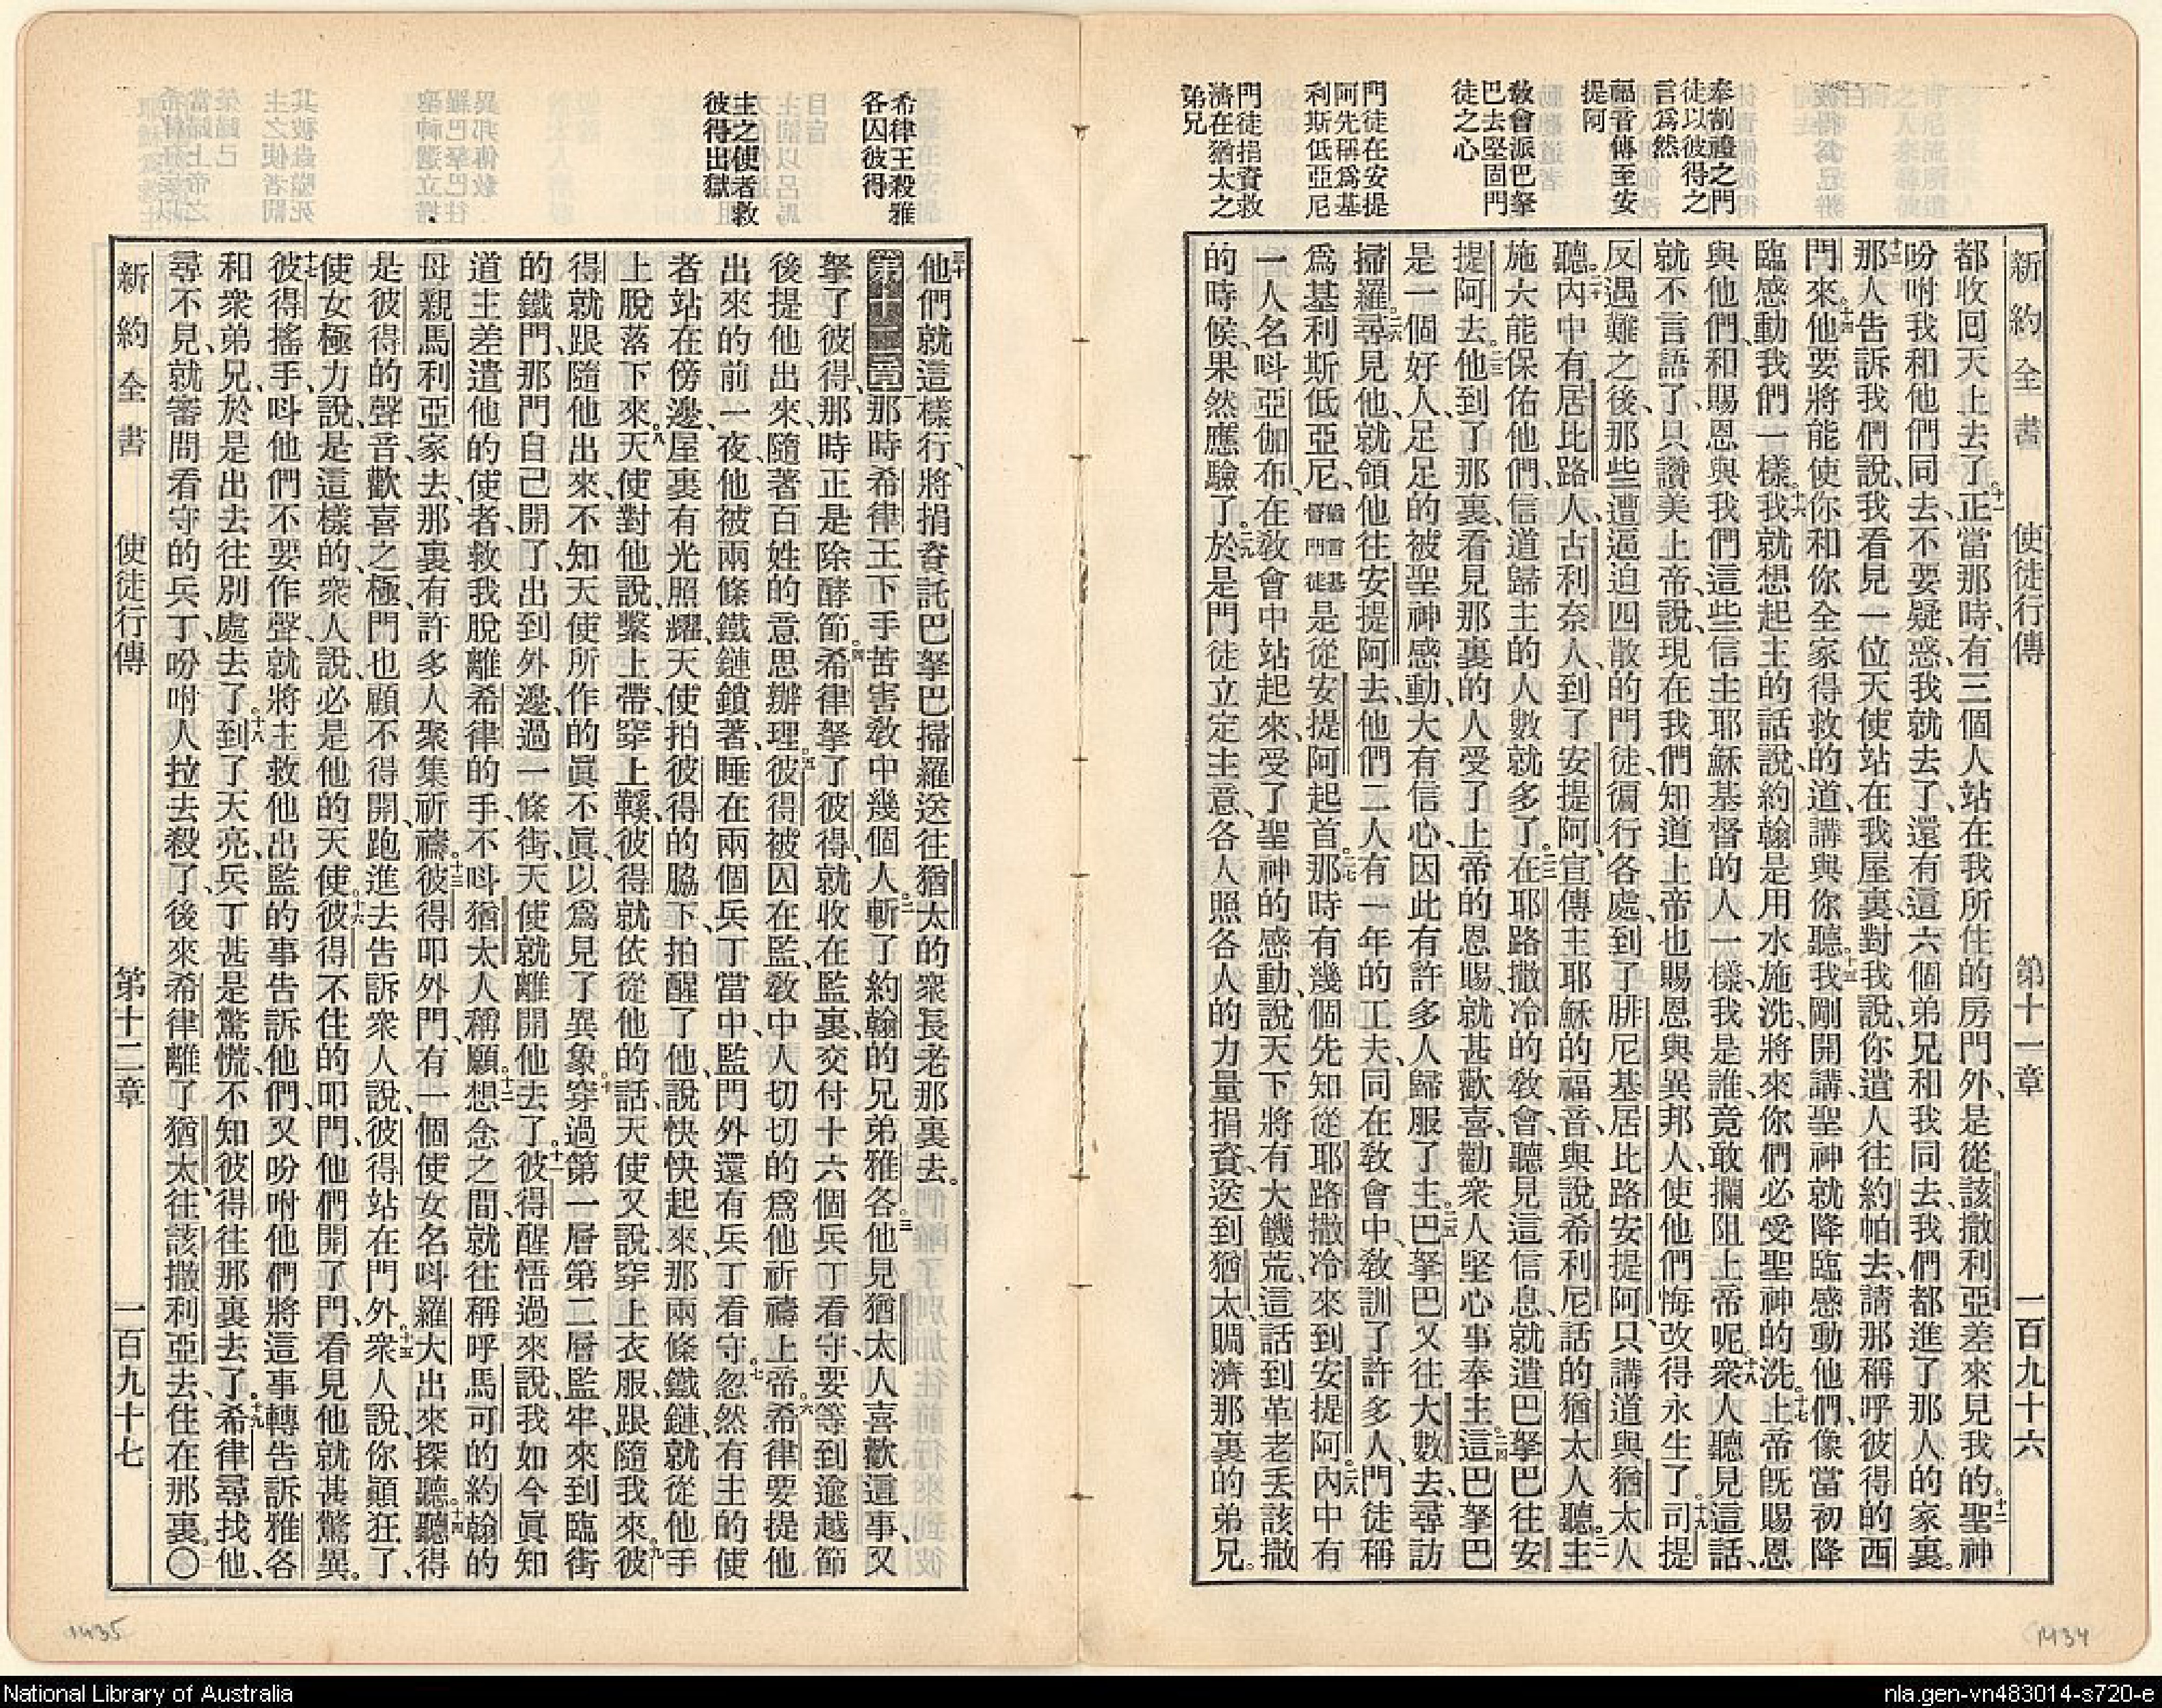 奉割禮之門
徒以彼得之
言爲然
福音傳至安
提阿
敎會派巴拏
巴去堅固門
徒之心
門徒在安提
阿先稱爲基
利斯低亞尼
門徒捐資救
濟在猶太之
弟兄
新約全書 使徒行傳 第十一章 一百九十六
都收回天上去了。十一正當那時、有三個人站在我所住的房門外、是從該撒利亞差來見我的。十二聖神
吩咐我和他們同去、不要疑惑、我就去了、還有這六個弟兄和我同去、我們都進了那人的家裏。
十三那人告訴我們說、我看見一位天使站在我屋裏、對我說、你遣人往約帕去、請那稱呼彼得的西
門來。十四他要將能使你和你全家得救的道、講與你聽。十五我剛開講、聖神就降臨感動他們、像當初降
臨感動我們一樣。十六我就想起主的話說、約翰是用水施洗、將來你們必受聖神的洗。十七上帝旣賜恩
與他們、和賜恩與我們這些信主耶穌基督的人一樣、我是誰、竟敢攔阻上帝呢。十八衆人聽見這話、
就不言語了、只讚美上帝、說、現在我們知道上帝也賜恩與異邦人、使他們悔改得永生了。十九司提
反遇難之後、那些遭逼迫四散的門徒、徧行各處、到了腓尼基居比路安提阿、只講道與猶太人
聽。二十內中有居比路人、古利奈人、到了安提阿、宣傳主耶穌的福音、與說希利尼話的猶太人聽。二一主
施大能保佑他們、信道歸主的人數就多了。二二在耶路撒冷的敎會、聽見這信息、就遣巴拏巴往安
提阿去。二三他到了那裏、看見那裏的人受了上帝的恩賜、就甚歡喜、勸衆人堅心事奉主。二四這巴拏巴
是一個好人、足足的被聖神感動、大有信心、因此有許多人歸服了主。二五巴拏巴又往大數去、尋訪
掃羅。二六尋見他、就領他往安提阿去、他們二人有一年的工夫、同在敎會中、敎訓了許多人、門徒稱
爲基利斯低亞尼、譯言基督門徒是從安提阿起首。二七那時有幾個先知從耶路撒冷來到安提阿。二八內中有
一人名呌亞伽布、在敎會中站起來、受了聖神的感動、說天下將有大饑荒、這話到革老丟該撒
的時候、果然應驗了。二九於是門徒立定主意、各人照各人的力量捐資、送到猶太賙濟那裏的弟兄。
希律王殺雅
各囚彼得
主之使者救
彼得出獄
三十他們就這樣行、將捐資託巴拏巴掃羅送往猶太的衆長老那裏去。
第十二章 那時希律王下手苦害敎中幾個人。二斬了約翰的兄弟雅各。三他見猶太人喜歡這事、又
拏了彼得、那時正是除酵節。四希律拏了彼得、就收在監裏、交付十六個兵丁看守、要等到逾越節
後提他出來、隨著百姓的意思辦理。五彼得被囚在監、敎中人切切的爲他祈禱上帝。六希律要提他
出來的前一夜、他被兩條鐵鏈鎖著、睡在兩個兵丁當中、監門外還有兵丁看守。七忽然有主的使
者站在傍邊、屋裏有光照耀、天使拍彼得的脇下、拍醒了他、說、快快起來、那兩條鐵鏈就從他手
上脫落下來。八天使對他說、繫上帶、穿上鞵、彼得就依從他的話、天使又說、穿上衣服、跟隨我來。九彼
得就跟隨他出來、不知天使所作的眞不眞、以爲見了異象。十穿過第一層第二層監牢、來到臨街
的鐵門、那門自己開了、出到外邊、過一條街、天使就離開他去了。十一彼得醒悟過來、說、我如今眞知
道主差遣他的使者、救我脫離希律的手、不呌猶太人稱願。十二想念之間、就往稱呼馬可的約翰的
母親馬利亞家去、那裏有許多人聚集祈禱。十三彼得叩外門、有一個使女名呌羅大出來探聽。十四聽得
是彼得的聲音、歡喜之極、門也顧不得開、跑進去告訴衆人說、彼得站在門外。十五衆人說、你顚狂了、
使女極力說、是這樣的、衆人說、必是他的天使。十六彼得不住的叩門、他們開了門、看見他就甚驚異。
十七彼得搖手、呌他們不要作聲、就將主救他出監的事告訴他們、又吩咐他們將這事轉告訴雅各
和衆弟兄、於是出去往別處去了。十八到了天亮、兵丁甚是驚慌、不知彼得往那裏去了。十九希律尋找他、
尋不見、就審問看守的兵丁、吩咐人拉去殺了、後來希律離了猶太、往該撒利亞去、住在那裏。〇
新約全書 使徒行傳 第十二章 一百九十七
1435
1434
National Library of Australia
nla.gen-vn483014-s720-e